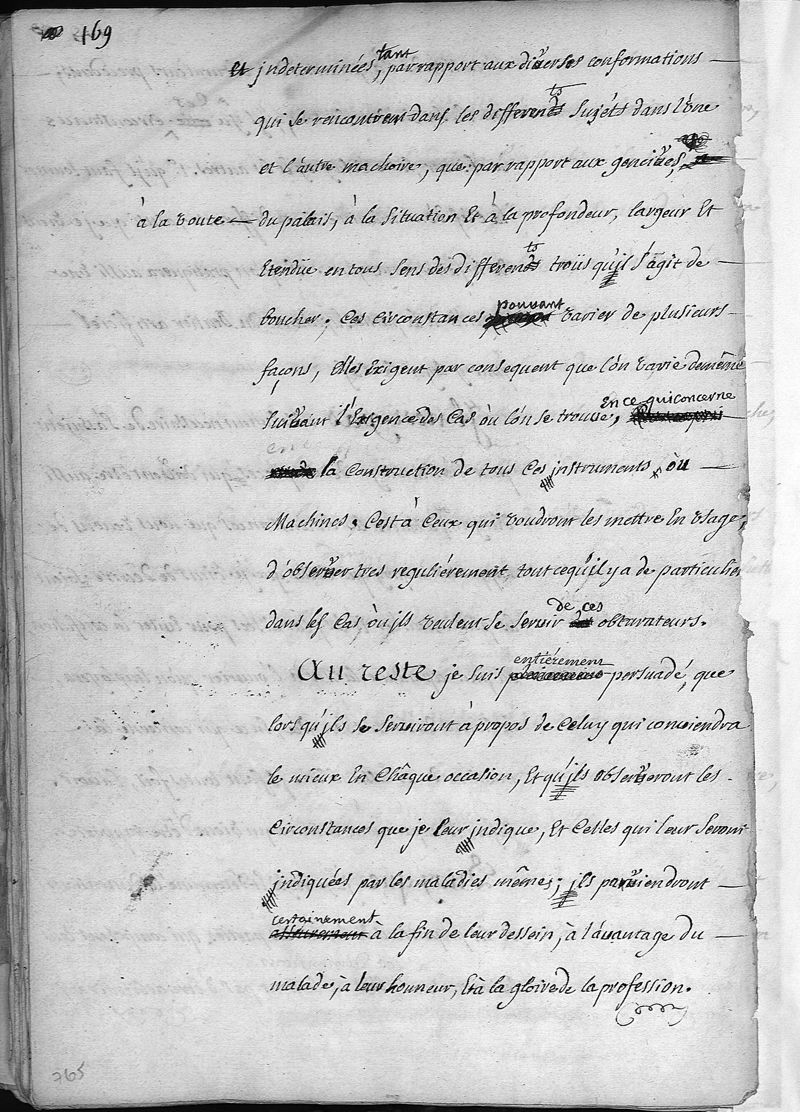 169
et jndeterminées, tant par rapport aux diverses conformations
qui se rencontrent dans les differents sujéts dans l'une
et l'autre machoire, que par rapport aux gencives,
à la voute du palais, à la situation et à la profondeur, largeur et
etendüe en tous sens des differents troüs qu'il s'agit de
boucher. Ces circonstances pouvant varier de plusieurs
façons, elles exigent par consequent que l'on varie de même
suivant l'exigence des cas où l'on se trouve, en ce qui concerne
la construction de tous ces jnstruments où
Machines. C'est à ceux qui voudront les mettre en usage,
d'observer tres reguliérement tout ce qu'il y a de particulier
dans les cas où jls veulent se servir de ces obturateurs.
Au reste je suis entiérement persuadé, que
lorsqu'jls se serviront à propos de celuy qui conviendra
le mieux en châque occasion, et qu'jls observeront les
circonstances que je leur jndique, et celles qui leur seront
jndiquées par les maladies mêmes; jls parviendront
certainement à la fin de leur dessein, à l'avantage du
malade, à leur honneur, et à la gloire de la profession.
365